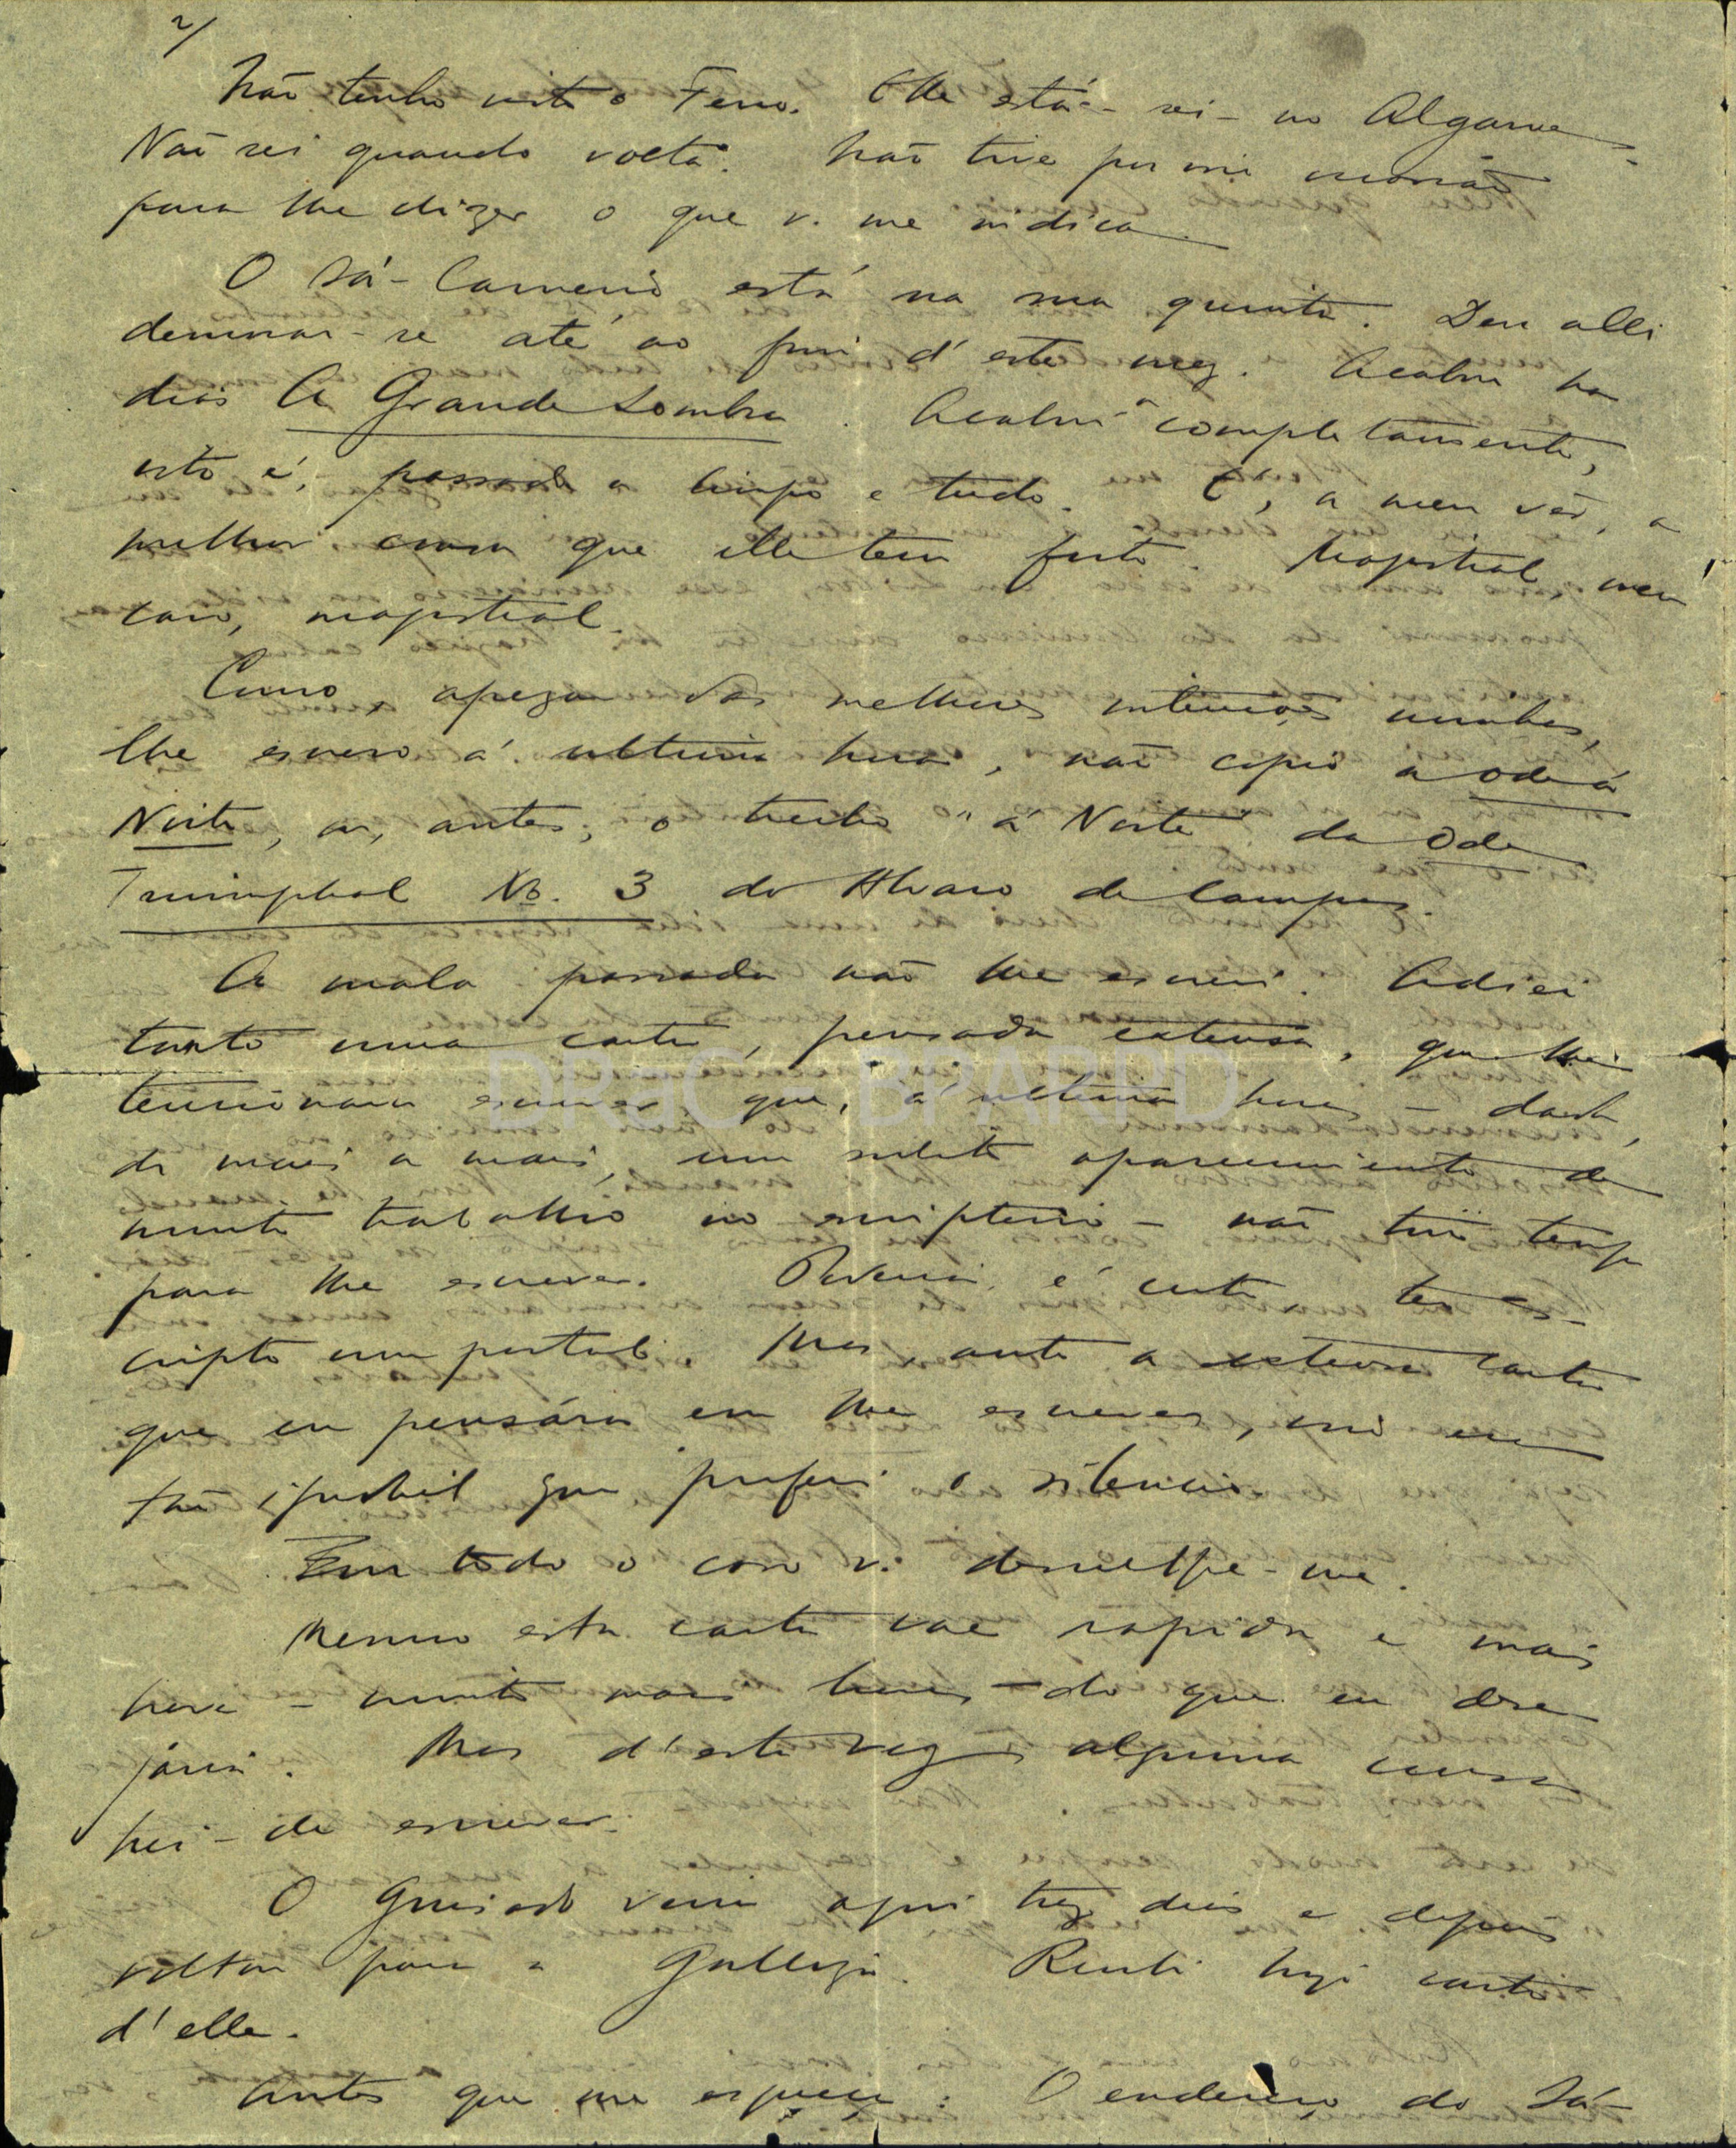 2/
Não tenho visto o Ferro. Elle está – sei – no Algarve.
Não sei quando volta. Não tive por isso occasião
para lhe dizer o que v. me indica.
O Sá-Carneiro está na sua quinta. Deve alli
demorar-se até ao fim d'este mez. Acabou ha
dias A Grande Sombra. Acabou completamente,
isto é, passada a limpo e tudo. É, a meu vêr, a
melhor cousa que elle tem feito. Magistral, meu
caro, magistral.
Como, apezar das melhores intenções minhas,
lhe escrevo á ultima hora, não copio a Ode á
Noite, ou, antes, o trecho "á Noite" da Ode
Triumphal No. 3 do Alvaro de Campos.
A mala passada não lhe escrevi. Adiei
tanto uma carta, pensada extensa, que lhe
tencionava escrever, que, á ultima hora – dado,
de mais a mais, um subito apparecimento de
muito trabalho no escriptorio – não tive tempo
para lhe escrever. Poderia, é certo, ter es-
cripto um postal. Mas, ante a extensa carta
que eu pensára em lhe escrever, isso era
tão ignobil que preferi o silencio.
Em todo o caso v. desculpe-me.
Mesmo esta carta vae rapida e mais
breve – muito mais breve – do que eu dese-
jaria. Mas d'esta vez alguma cousa
hei-de escrever.
O Guisado veiu aqui trez dias e depois
voltou para a Galliza. Recebi hoje carta
d'elle.
Antes que me esqueça: O endereço do Sá-
DRIC - BPARPD